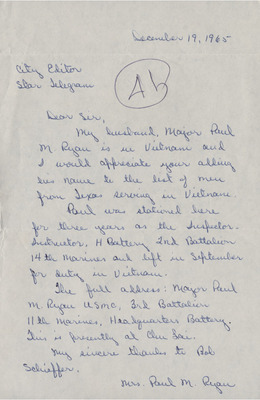 December 19, 1965
City Editor
Star Telegram
4b
Dear Sir,
My husband, Major Paul
M Ryan is in Vietnam and
I would appreciate your adding
his name to the list of men
from Texas serving in Vietnam.
Paul was stationed here
for three years as the Inspector-
Instructor, H Battery 2nd Battalion
14th Marines and left in September
for duty in Vietnam.
The full address: Major Paul
M. Ryan USMC, 3rd Battalion
11th Marines, Headquarters Battery.
This is presently at Chu Lai.
My sincere thanks to Bob
Schieffer.
Mrs. Paul M. Ryan